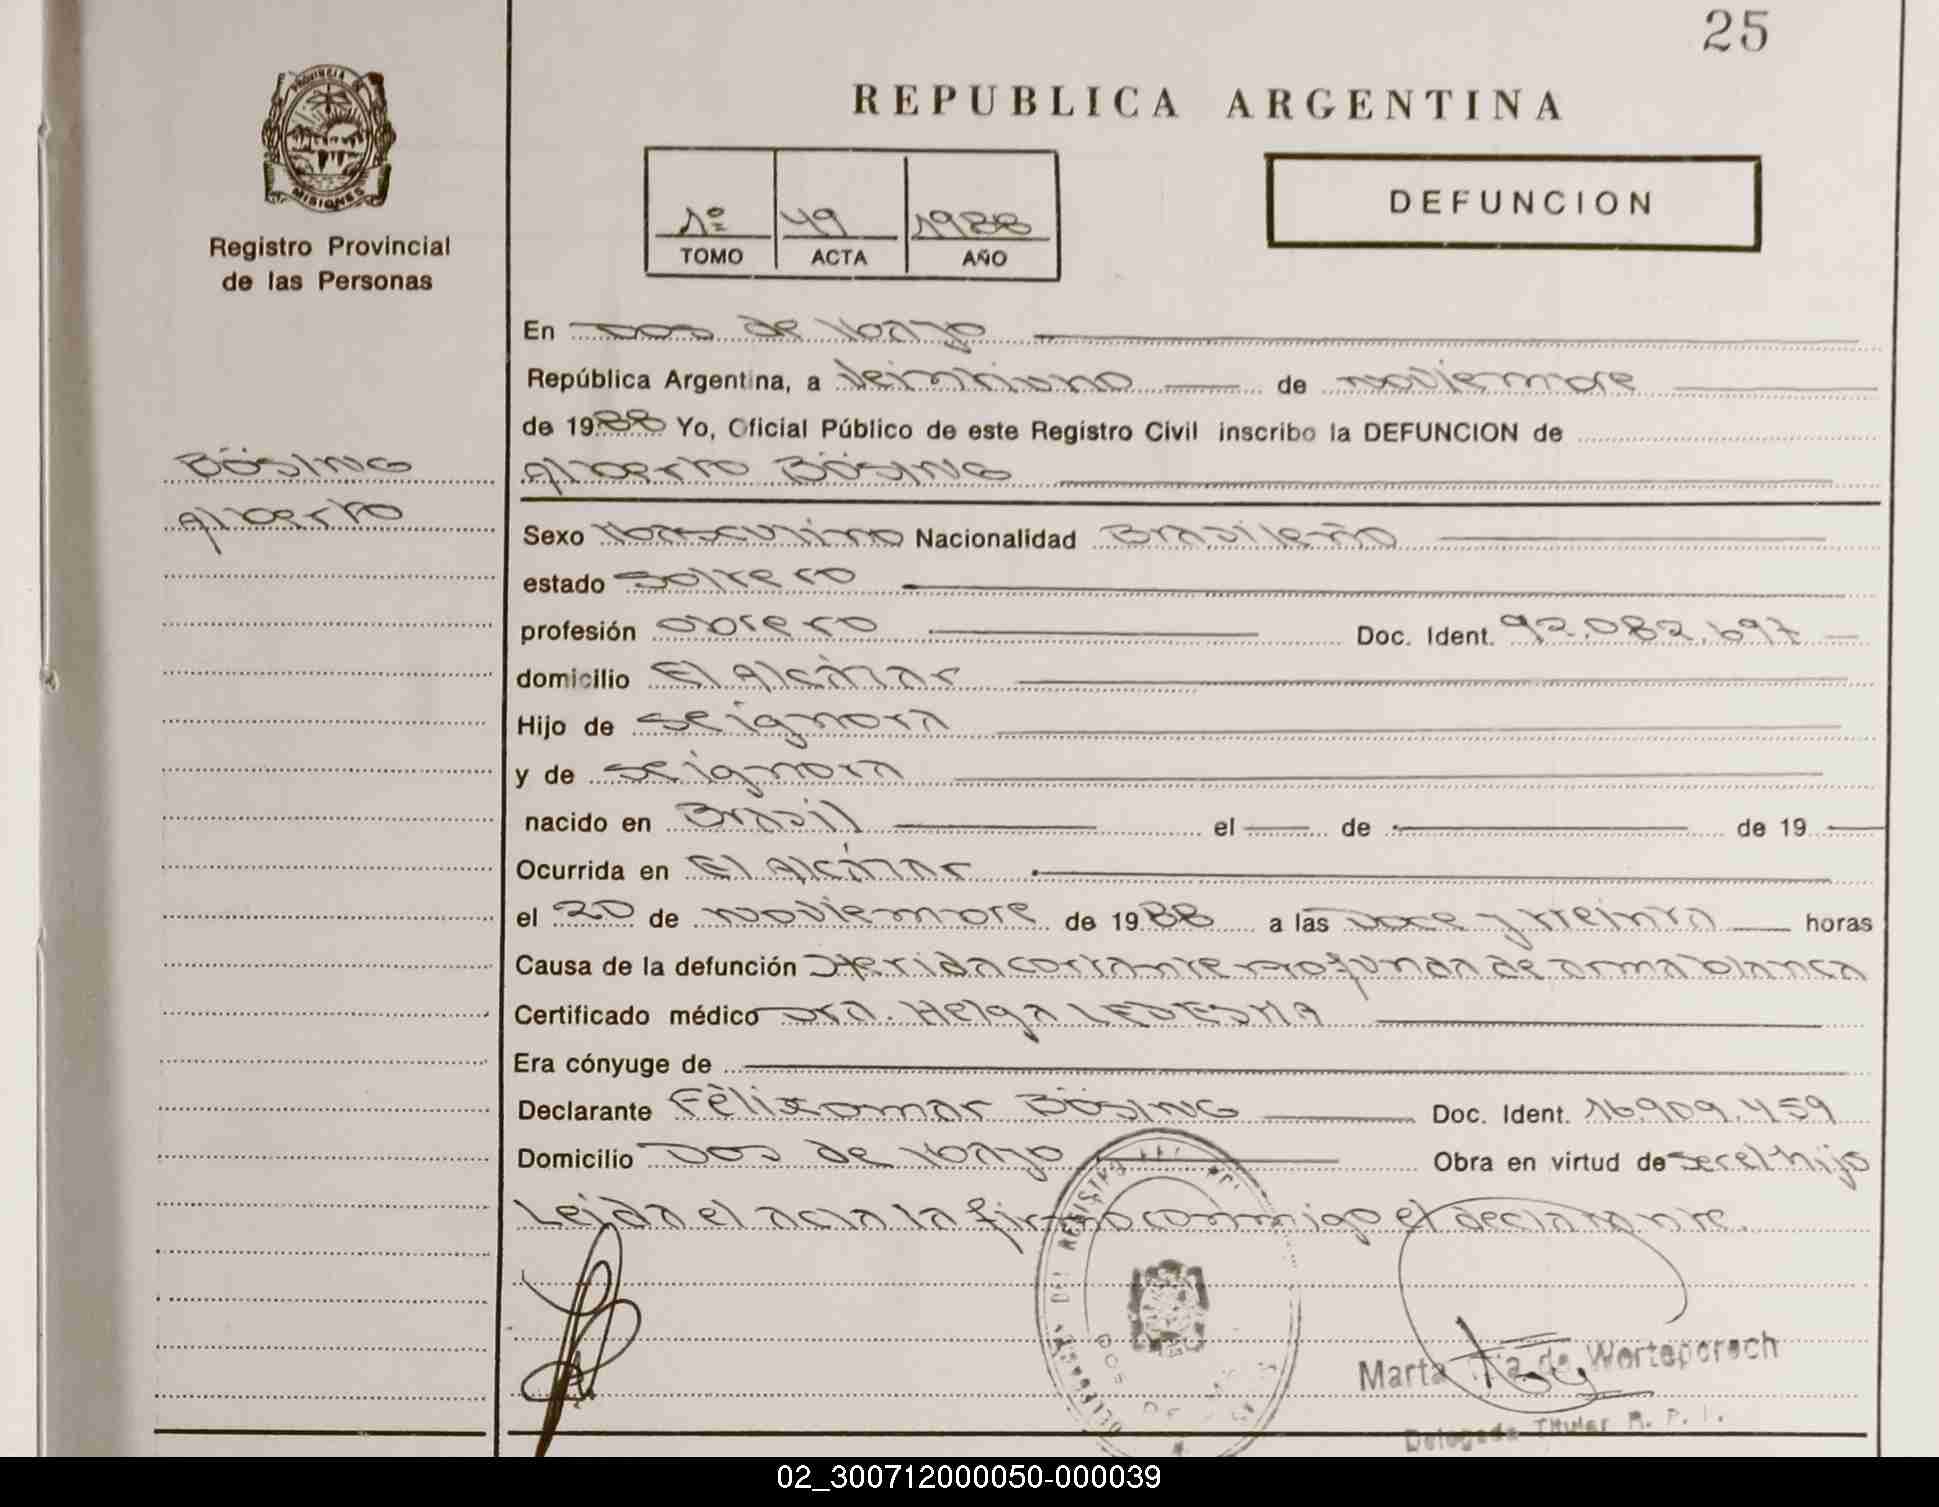 25
REPUBLICA ARGENTINA
PROVINCIA DE
MISIONES
Registro Provincial
de las Personas
1º 49 1988
TOMO ACTA AÑO
DEFUNCION
En Dos de Mayo
República Argentina, a veintiuno de noviembre
de 1988 Yo, Oficial Público de este Registro Civil inscribo la DEFUNCION de
BÖSING
Alberto
Alberto BÖSING
Sexo Masculino Nacionalidad Brasileño
estado soltero
profesión obrero Doc. Ident. 92.082.697
domicilio El Alcázar
Hijo de se ignora
y de se ignora
nacido en Brasil el de de 19
Ocurrida en El Alcázar
el 20 de noviembre de 1988 a las Doce y treinta horas
Causa de la defunción Herida cortante profunda de arma blanca
Certificado médico Dra. Helga LEDESMA
Era cónyuge de
Declarante Félix Omar BÖSING Doc. Ident. 16.909.459
Domicilio Dos de Mayo Obra en virtud de ser el hijo
Leída el acta la firma conmigo el declarante.
DOS DE
Marta de
Delegada Titular R. P. 
02_300712000050-000039